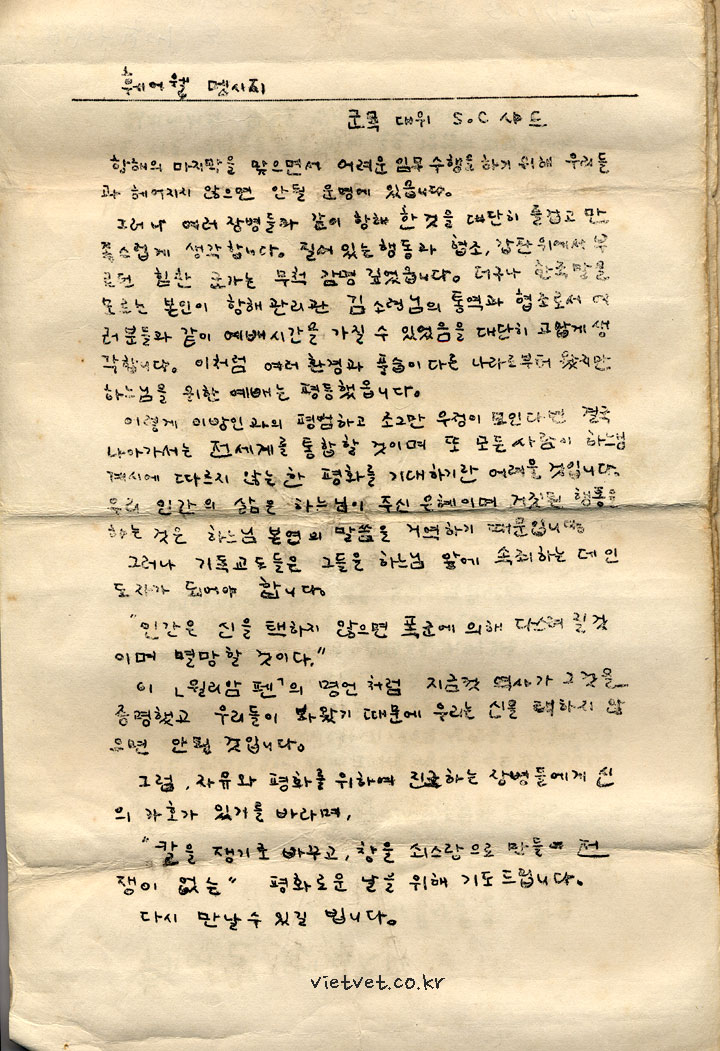 훼어웰 멧사지
군목 대위 S.C 샤드
항해의 마지막을 맞으면서 어려운 임무수행을 하기 위해 우리들
과 헤어지지 않으면 안될 운명에 있읍니다.
그러나 여러 장병들과 같이 항해 한 것을 대단히 즐겁고 만
족스럽게 생각합니다. 질서있는 행동과 협조, 갑판위에서 부
르던 힘찬 군가는 무척 감명 깊었읍니다. 더구나 한국말을
모르는 본인이 항해관리관 김소령님의 통역과 협조로서 여
러분들과 같이 예배시간을 가질 수 있었음을 대단히 고맙게 생
각합니다. 이처럼 여러 환경과 풍습이 다른 나라로부터 왔지만
하느님을 위한 예배는 평등했읍니다.
이렇게 이방인과의 평범하고 조그만 우정이 모인다면 결국
나아가서는 전세계를 통합할 것이며 또 모든 사람이 하느님
계시에 따르지 않는한 평화를 기대하기란 어려울 것입니다.
우리 인간의 삶은 하느님이 주신 은혜이며 거짓된 행동을
하는 것은 하느님 본연의 말씀을 거역하기 때문입니다.
그러나 기독교도들은 그들은 하느님 앞에 속죄하는 데 인
도자가 되어야 합니다.
"인간은 신을 택하지 않으면 폭군에 의해 다스려 질것
이며 멸망할 것이다."
이 「윌리암 펜」의 명언처럼 지금껏 역사가 그것을
증명했고 우리들이 봐왔기 때문에 우리는 신을 택하지 않
으면 안될 것입니다.
그럼, 자유와 평화를 위하여 진군하는 장병들에게 신
의 가호가 있기를 바라며,
"칼을 쟁기로 바꾸고, 창을 쇠스랑으로 만들어 전
쟁이 없는" 평화로운 날을 위해 기도드립니다.
다시 만날수 있길 빕니다.
vietvet.co.kr